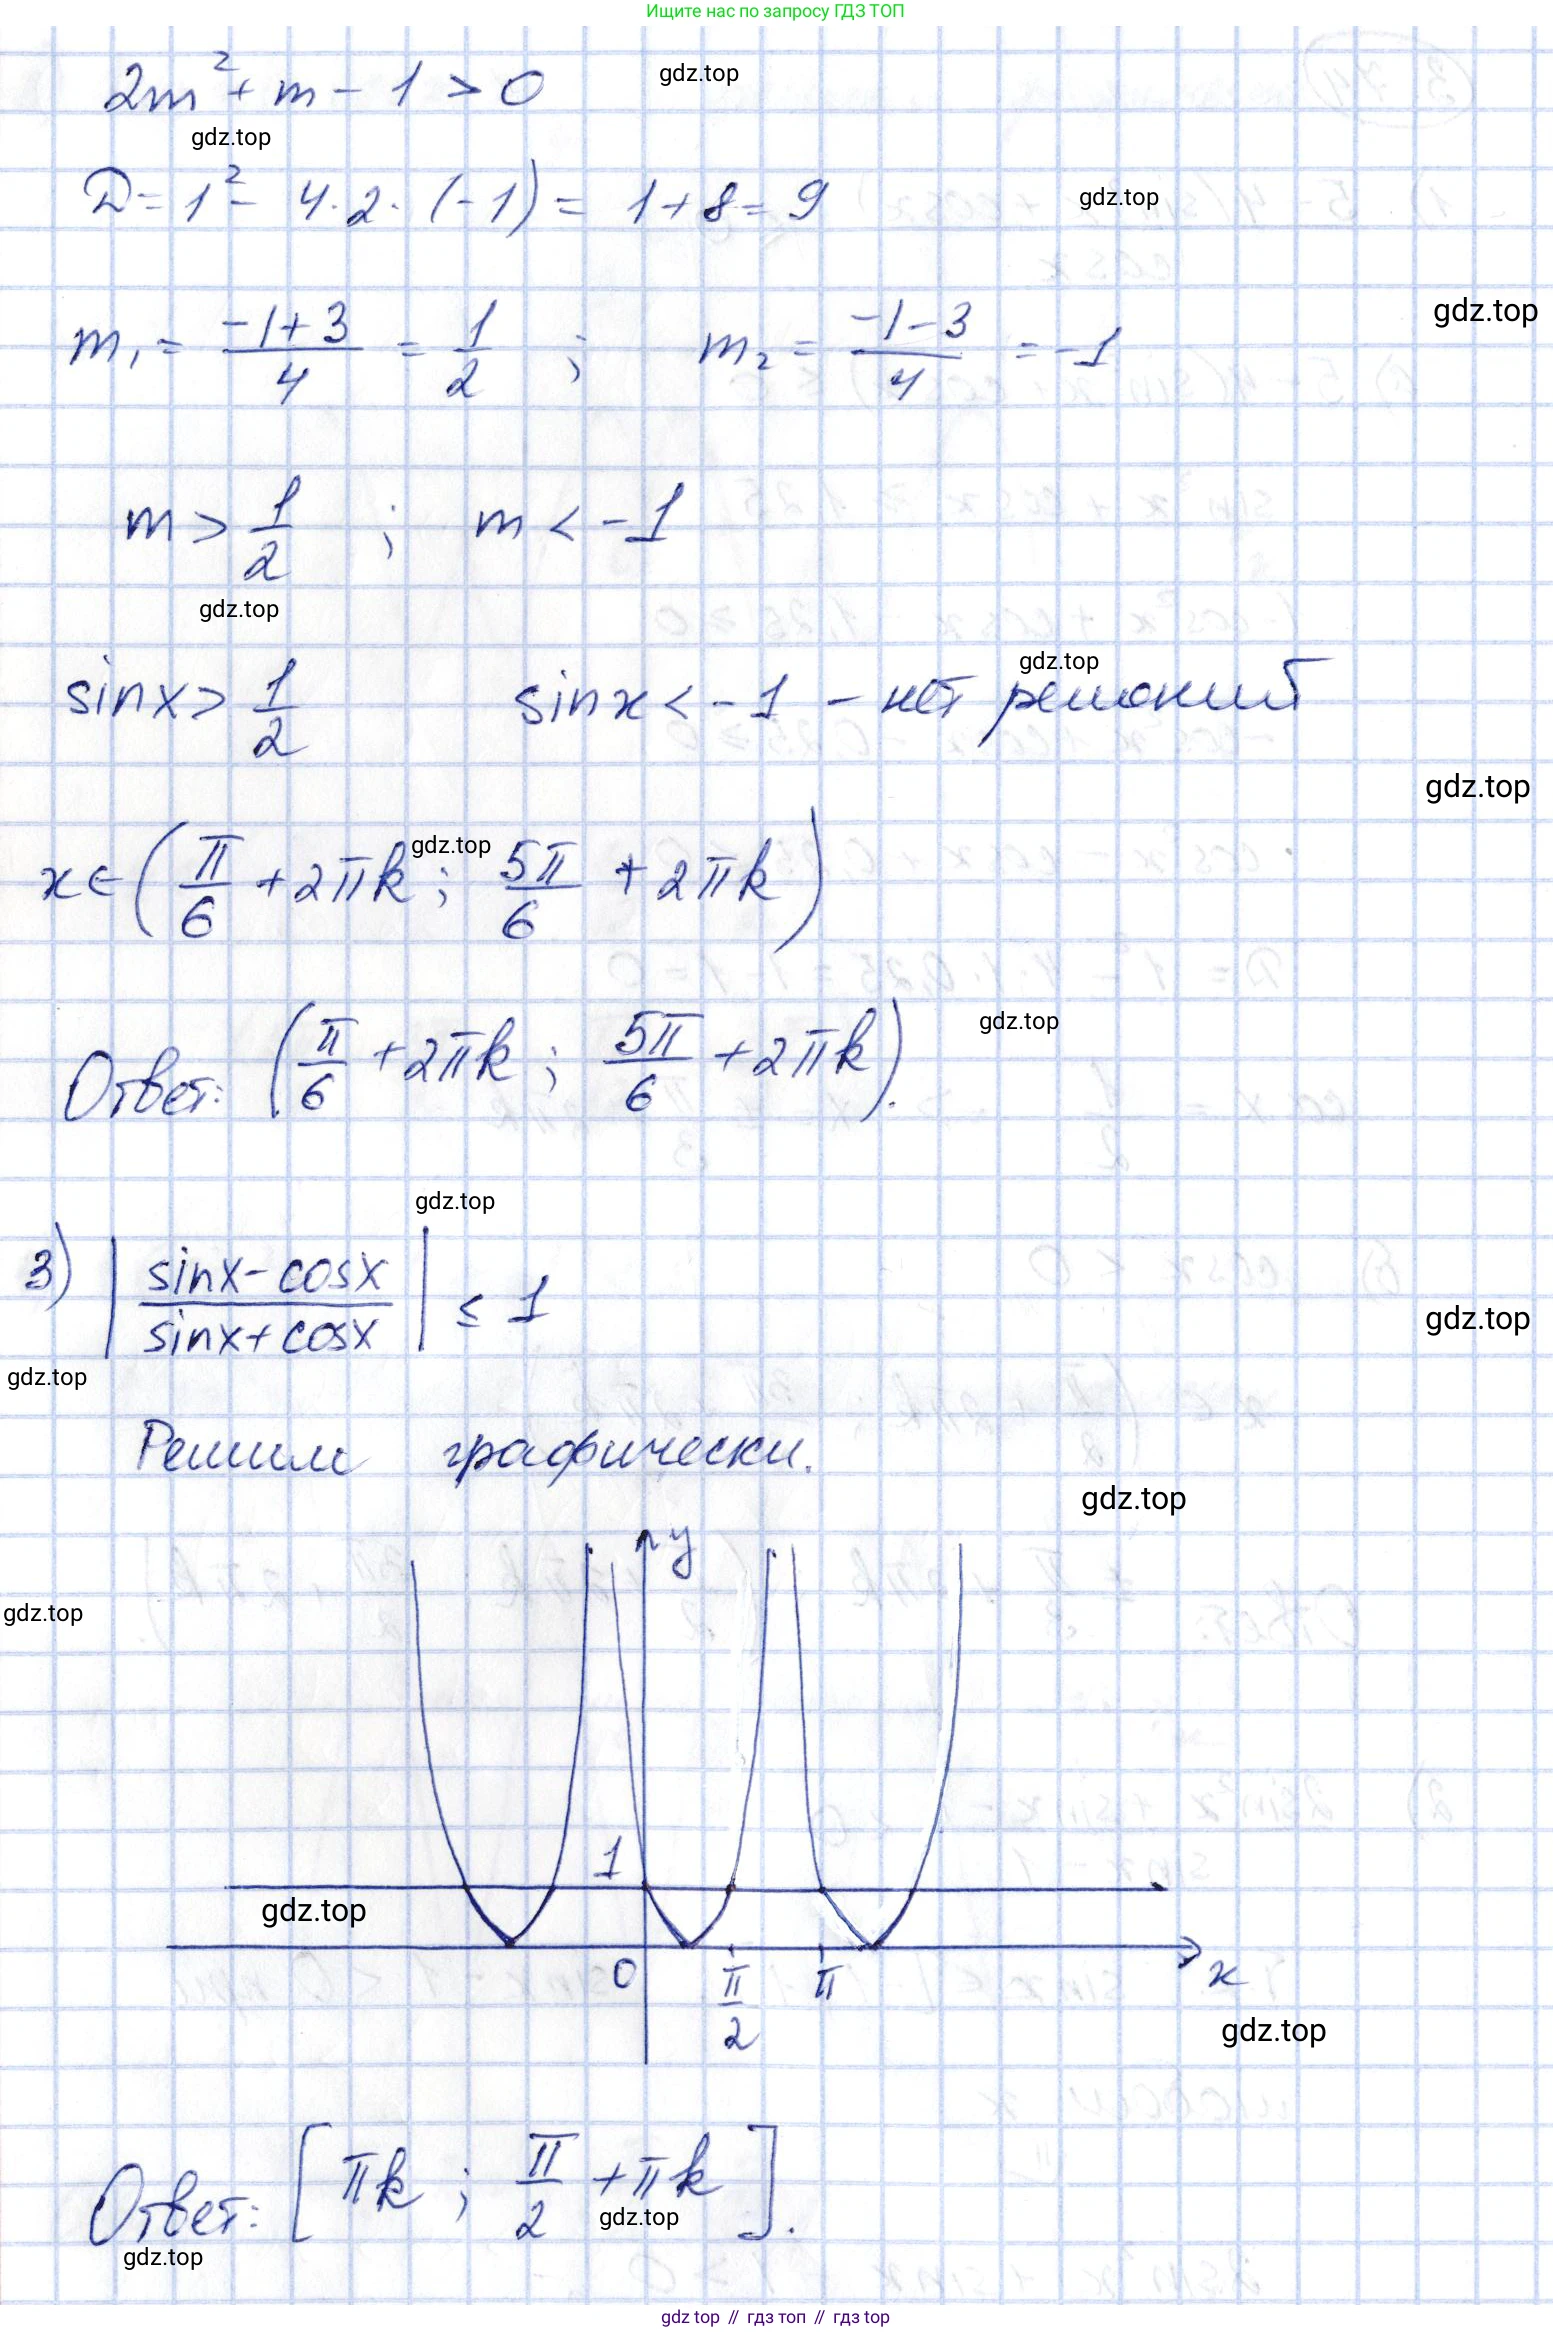 Ищите нас по запросу ГДЗ ТОП
2m² + m - 1 > 0
gdz.top
gdz.top
D = 1² - 4·2·(-1) = 1 + 8 = 9
gdz.top
m₁ = (-1+3)/4 = 1/2 ; m₂ = (-1-3)/4 = -1
gdz.top
m > 1/2 ; m < -1
gdz.top
sinx > 1/2 sinx < -1 - нет решений
gdz.top
gdz.top
x ∈ (π/6 + 2πk ; 5π/6 + 2πk)
gdz.top
Ответ: (π/6 + 2πk ; 5π/6 + 2πk).
gdz.top
gdz.top
3) |(sinx - cosx)/(sinx + cosx)| ≤ 1
gdz.top
gdz.top
Решим графически.
gdz.top
y
gdz.top
1
gdz.top
0 π/2 π x
gdz.top
Ответ: [πk ; π/2 + πk].
gdz.top
gdz.top
gdz top // гдз топ // gdz top